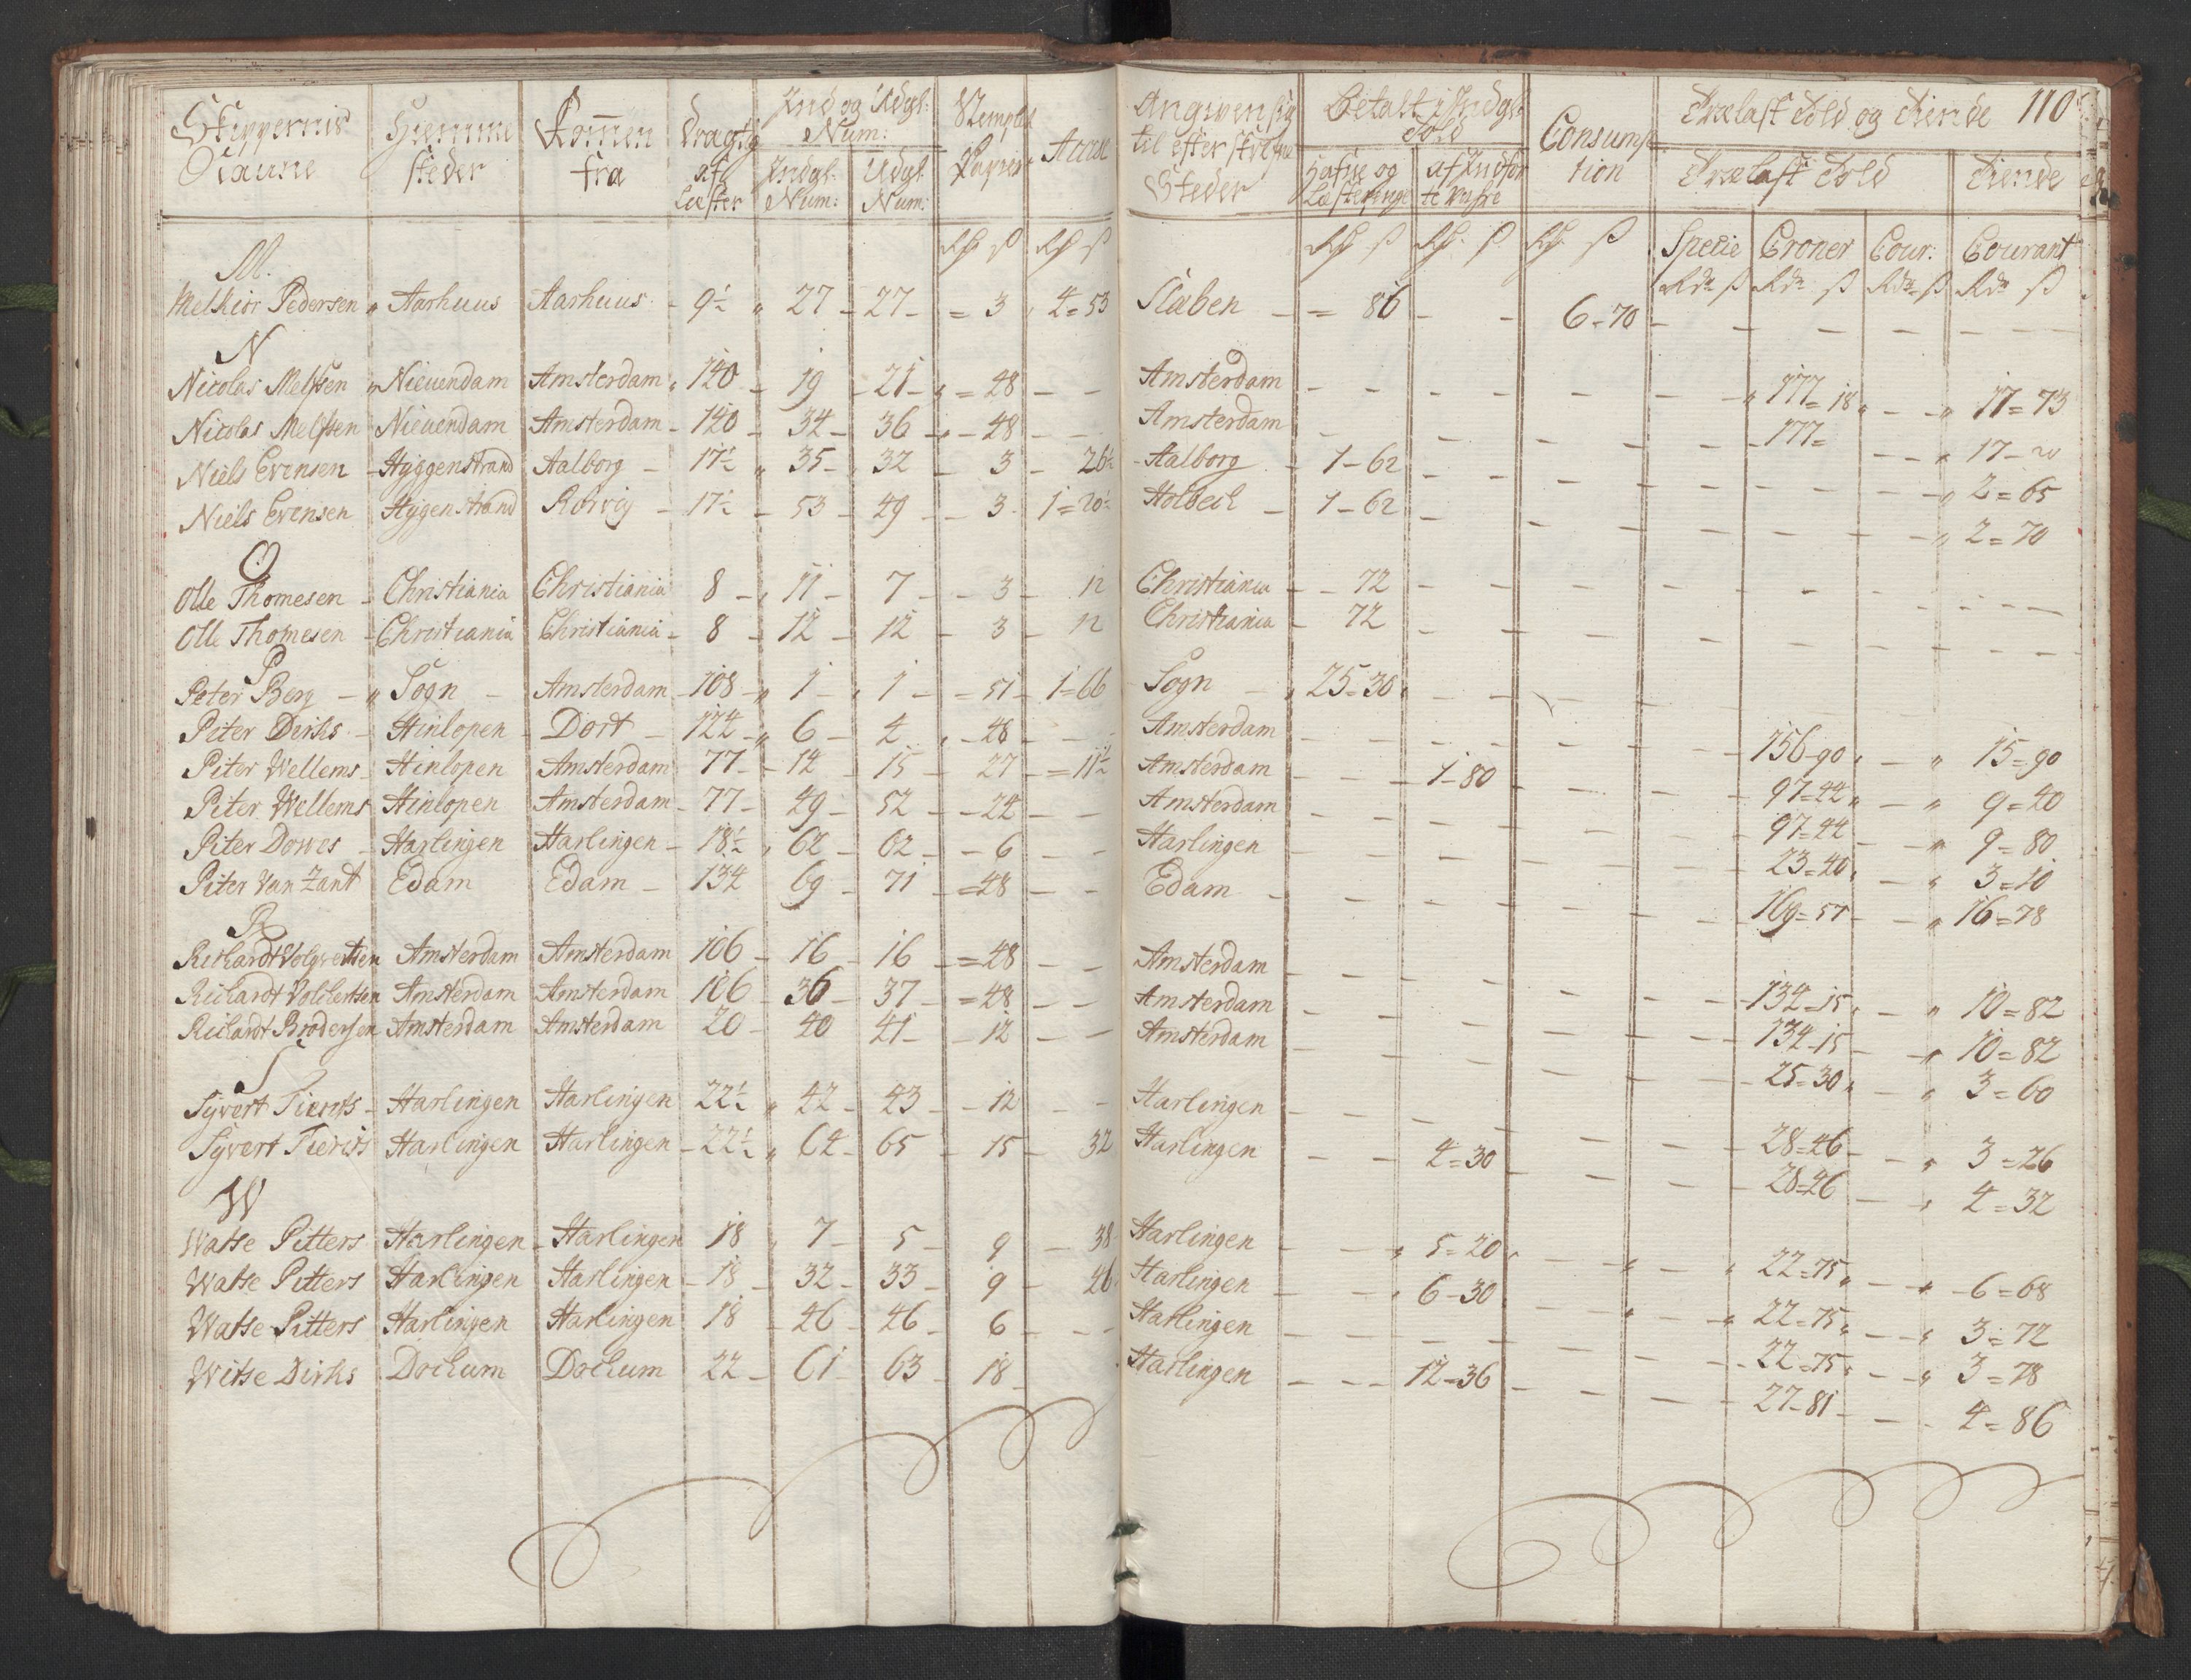 Skippernis Naune | Hiemme steder | Kommen fra | Drægtig af Læster | Ind og Udgl: Num: | Indgl: Num: | Udgl Num: | Stemplet Papiir | Accise | Angiven sig til efter skrefne Steder | Betalt i Indgl: Told | Hafne og Læstepenge | af Indfør te Vahre | Consumption | Trælast Told og Tiende 110
Trælast Told | Tiende
Rd ß | Rd ß | Rd ß | Rd. ß. | Rd. ß | Specie | Croner | Cour: | Courant
Rdr ß | Rdr ß | Rdr ß | Rdr ß
M.
Melkior Pedersen | Aarhuus | Aarhuus | 9½ | 27 | 27 | = 3 | 4=53 | Slaben | = 86 | - | 6=70
N
Nicolas Melssen | Nieuendam | Amsterdam | 140 | 19 | 21 | = 48 | - | Amsterdam | 177=18 | 17=73
Nicolas Melssen | Nieuendam | Amsterdam | 140 | 34 | 36 | - 48 | - | Amsterdam | 177= | 17-20
Niels Evensen | Hyggenstrand | Aalborg | 17½ | 35 | 32 | 3 | 26½ | Aalborg | 1-62 | 2=65
Niels Evensen | Hygenstrand | Rørvig | 17½ | 53 | 49 | 3 | 1=20½ | Holbech | 1-62 | 2=70
O
Olle Thomesen | Christiania | Christiania | 8 | 11 | 7 | 3 | 12 | Christiania | 72
Olle Thomesen | Christiania | Christiania | 8 | 12 | 12 | 3 | 12 | Christiania | 72
P
Peter Berg | Sogn | Amsterdam | 108 | 1 | 1 | = 51 | 1=66 | Sogn | 25=30
Piter Dirks | Hinlopen | Dort | 124 | 6 | 4 | 48 | - | Amsterdam | 156-90 | 15=90
Piter Wellems | Hinlopen | Amsterdam | 77 | 14 | 15 | 27 | =11½ | Amsterdam | 1-80 | 97=44 | 9=40
Piter Wellems | Hinlopen | Amsterdam | 77 | 49 | 52 | 24 | - | Amsterdam | 97=44 | 9=80
Piter Dowes | Harlingen | Harlingen | 18½ | 62 | 62 | 6 | - | Harlingen | 23=40 | 3=10
Piter Van Zant | Edam | Edam | 134 | 69 | 71 | =48 | - | Edam | 169=57 | 16=78
R
Richardt Volqvertsen | Amsterdam | Amsterdam | 106 | 16 | 16 | =48 | - | Amsterdam | 134=15 | 10=82
Richardt Volchertsen | Amsterdam | Amsterdam | 106 | 36 | 37 | =48 | - | Amsterdam | 134-15 | 10=82
Richardt Brodersen | Amsterdam | Amsterdam | 20 | 40 | 41 | 12 | - | Amsterdam | 25=30 | 3=60
S
Syvert Tierits | Harlingen | Harlingen | 22½ | 42 | 43 | 12 | - | Harlingen | 28=46 | 3=26
Syvert Tierits | Harlingen | Harlingen | 22½ | 64 | 65 | 15 | 32 | Harlingen | 4=30 | 28=46 | 4=32
W
Watse Pitters | Harlingen | Harlingen | 18 | 7 | 5 | 9 | 38 | Harlingen | 5=20 | 22=75 | 6=68
Watse Pitters | Harlingen | Harlingen | 18 | 32 | 33 | 9 | 46 | Harlingen | 6-30 | 22=75 | 3=72
Watse Pitters | Harlingen | Harlingen | 18 | 46 | 46 | 6 | - | Harlingen | 22=75 | 3=78
Witse Dirks | Dockum | Dockum | 22 | 61 | 63 | 18 | Harlingen | 12=36 | 27-81 | 4=86